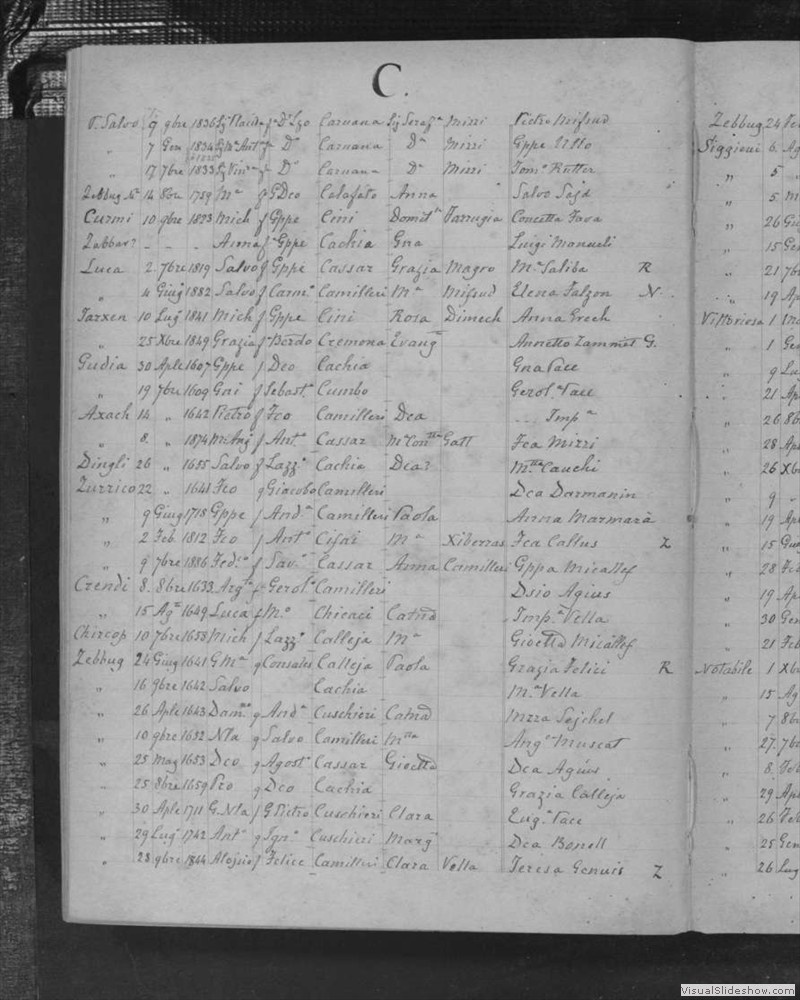 C.
P. Salvo 9 9bre 1836 Sg Placid Do Lzo Caruana Sg Seraf Mizzi Pietro Mifsud
" 7 Gen 1834 Caruana Da Mizzi Gppe Vllo
" 17 7bre 1833 Caruana Da Mizzi Tomo Rutter
Zebbug 14 8bre 1759 Ma f G Dco Calafato Anna Salvo Sajd
Curmi 10 9bre 1823 Mich f Gppe Cini Domit Farrugia Concetta Fava
Zabbar? - - - Anna f Gppe Cachia Gna Luigi Manueli
Luca 2 7bre 1819 Salvo f Gppe Cassar Grazia Magro Ma Saliba R
" 4 Giug 1882 Salvo f Carmo Camilleri Ma Mifsud Elena Falzon N
Tarxen 10 Lug 1841 Mich f Gppe Cini Rosa Dimech Anna Grech
" 25 Xbre 1849 Grazia f Berdo Cremona Evang Annetto Zammit G.
Gudia 30 Aple 1607 Gppe f Dco Cachia Gna Pace
" 19 7bre 1609 Gni f Sebast Cumbo Gerola Pace
Axach 14 " 1642 Pietro f Fco Camilleri Dca ... Impa
" 8 " 1874 f Anto Cassar Gatt Fca Mizzi
Dingli 26 " 1655 Salvo f Lazzo Cachia Dca? Cauchi
Zurrico 22 " 1641 Fco g Giacobo Camilleri Dca Darmanin
" 9 Giug 1718 Gppe f Anda Camilleri Paola Anna Marmarà
" 2 Feb 1812 Fco f Anto Cifai Ma Xiberras Fca Callus Z
" 9 7bre 1886 Fedco f Savo Cassar Anna Camilleri Gppa Micallef
Crendi 8 8bre 1633 f Gerolo Camilleri Dsio Agius
" 15 Ago 1649 Luca f Mo Chicaci Catna Impa Vella
Chircop 10 7bre 1658 Mich f Lazzo Calleja Ma Gioetta Micallef
Zebbug 24 Giug 1641 G Ma g Consales Calleja Paola Grazia Felizi R
" 16 9bre 1642 Salvo Cachia Ma Vella
" 26 Aple 1643 g Anda Cuschieri Catna Sejchel
" 10 9bre 1652 Nla g Salvo Camilleri Mtta Ango Muscat
" 25 Mag 1653 Dco g Agosto Cassar Gioetta Dca Agius
" 25 8bre 1659 Pro g Dco Cachia Grazia Calleja
" 30 Aple 1711 G. Nla f G Pietro Cuschieri Clara Euga Pace
" 29 Lug 1742 Anto g Igno Cuschieri Marg Dca Bonell
" 28 9bre 1844 Aloisio f Felice Camilleri Clara Vella Teresa Genuis Z
Zebbug 24
Siggieui 6 Ag
" 5
" 5 M
" 26
" 15 Gen
" 21 7b
" 19 Ap
Vittoriosa 1
" 1 Gen
" 9 Lu
" 21 Ap
" 26 8b
" 28 Ap
" 26 Xb
" 9
" 19 Ap
" 15
" 28
" 19 Ap
" 30 Gen
" 21 Feb
Notabile 1 Xb
" 15 Ag
" 7 8b
" 27 7b
" 8
" 29 Ap
" 26
" 25 Gen
" 26 Lug
VisualSlideshow.com